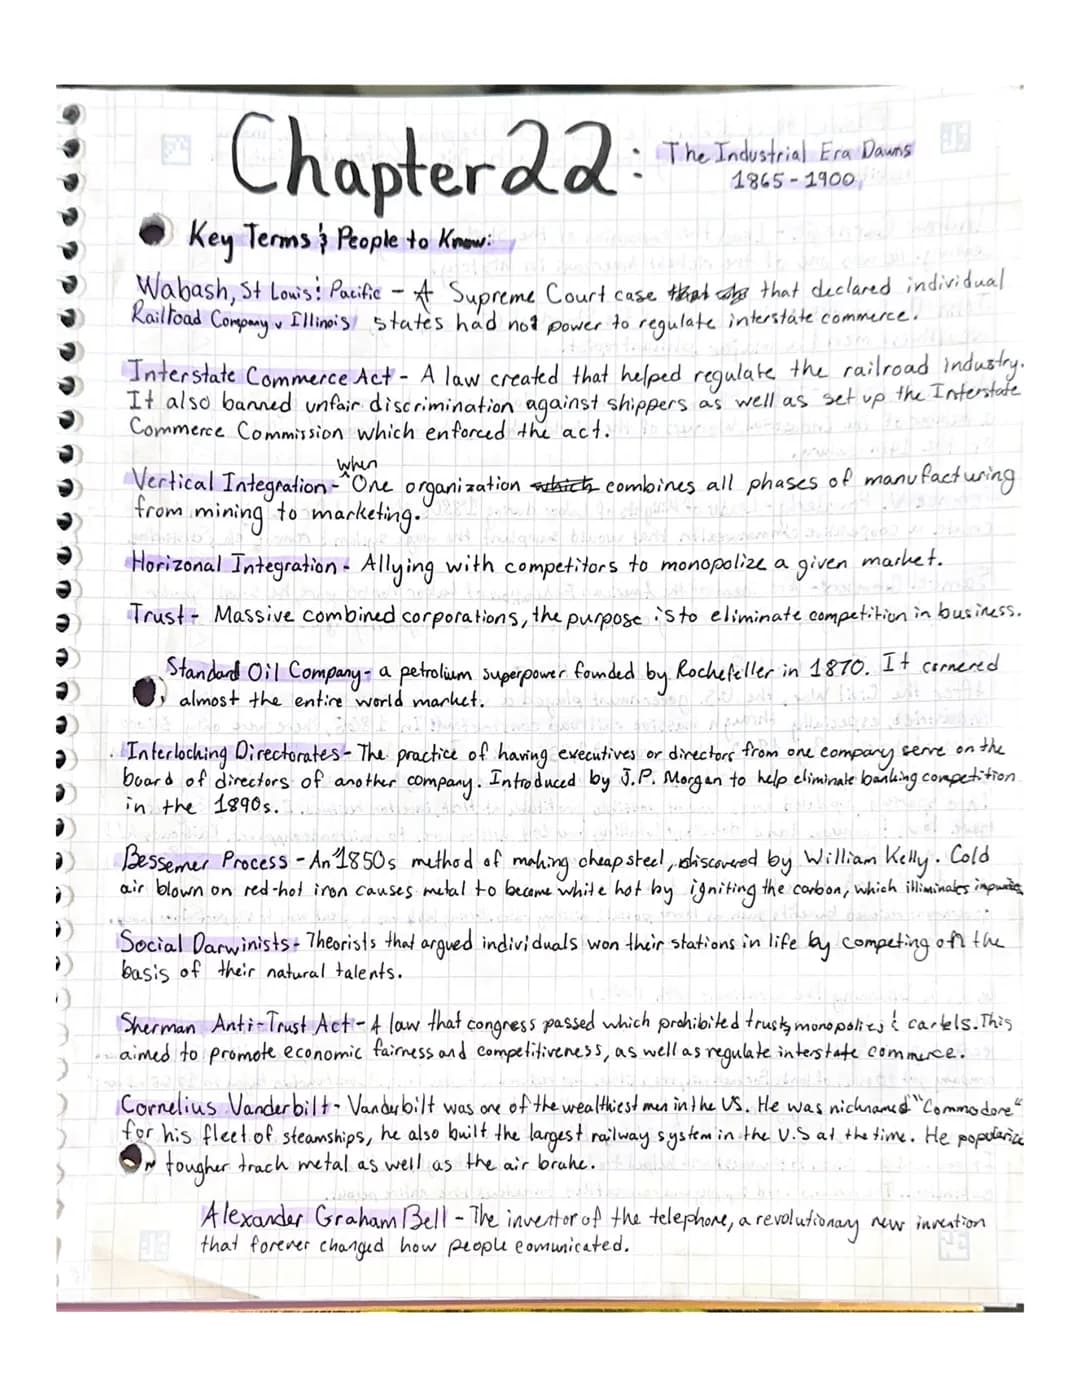 Chapter 22:
The Industrial Era Dawns
1865-1900
Key Terms & People to Know:
Wabash, St Louis & Pacific - A Supreme Court case that declared individual
Railroad Company v Illinois states had not power to regulate interstate commerce.
Interstate Commerce Act - A law created that helped regulate the railroad industry.
It also banned unfair discrimination against shippers as well as set up the Interstate
Commerce Commission which enforced the act.
When
Vertical Integration - ^One organization combines all phases of manufacturing
from mining to marketing.
Horizonal Integration - Allying with competitors to monopolize a given market.
Trust - Massive combined corporations, the purpose is to eliminate competition in business.
Standard Oil Company - a petrolium superpower founded by Rockefeller in 1870. It cornered
almost the entire world market.
Interlocking Directorates - The practice of having executives or directors from one company serve on the
board of directors of another company. Introduced by J.P. Morgan to help eliminate banking competition
in the 1890s.
Bessemer Process - An 1850s method of making cheap steel, discovered by William Kelly. Cold
air blown on red-hot iron causes metal to become white hot by igniting the carbon, which illiminates
Social Darwinists - Theorists that argued individuals won their stations in life by competing on the
basis of their natural talents.
Sherman Anti-Trust Act - A law that congress passed which prohibited trusts, monopolies & cartels. This
aimed to promote economic fairness and competitiveness, as well as regulate interstate commerce.
Cornelius Vanderbilt - Vanderbilt was one of the wealthiest men in the US. He was nicknamed "Commodore"
for his fleet of steamships, he also built the largest railway system in the U.S at the time. He
tougher track metal as well as the air brake.
Alexander Graham Bell - The inventor of the telephone, a revolutionary new invention
that forever changed how people comunicated.